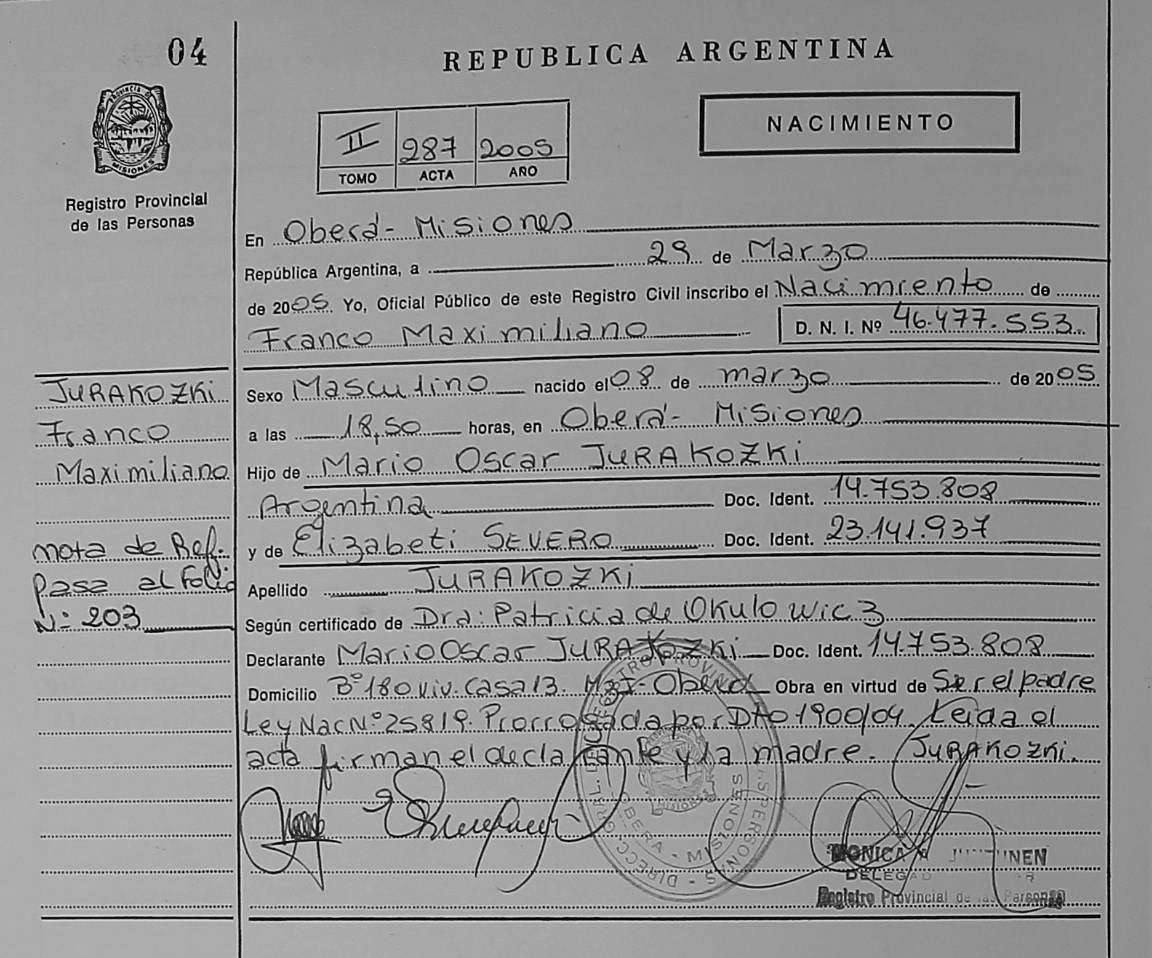 04
REPUBLICA ARGENTINA
NACIMIENTO
II 287 2005
TOMO ACTA AÑO
PROVINCIA DE MISIONES
Registro Provincial
de las Personas
En Oberá - Misiones
República Argentina, a 29 de Marzo
de 2005 Yo, Oficial Público de este Registro Civil inscribo el Nacimiento de
Franco Maximiliano D. N. I. Nº 46.477.553
JURAKOZKI
Franco
Maximiliano
nota de Ref.
pasa al Folio
Nº 203
Sexo Masculino nacido el 08 de marzo de 2005
a las 18,50 horas, en Oberá - Misiones
Hijo de Mario Oscar JURAKOZKI
Argentina Doc. Ident. 14.753.808
y de Elizabeti SEVERO Doc. Ident. 23.141.937
Apellido JURAKOZKI
Según certificado de Dra: Patricia de Okulowicz
Declarante Mario Oscar JURAKOZKI Doc. Ident. 14.753.808
Domicilio Bº 180 viv. Casa 13. Oberá Obra en virtud de Ser el padre
Ley Nac Nº 25819. Prorrogada por Dto 1900/04. Leida el
acta firman el declarante y la madre. JURAKOZKI.
OBERA - MISIONES
MONICA
DELEGA
Registro Provincial de las Personas